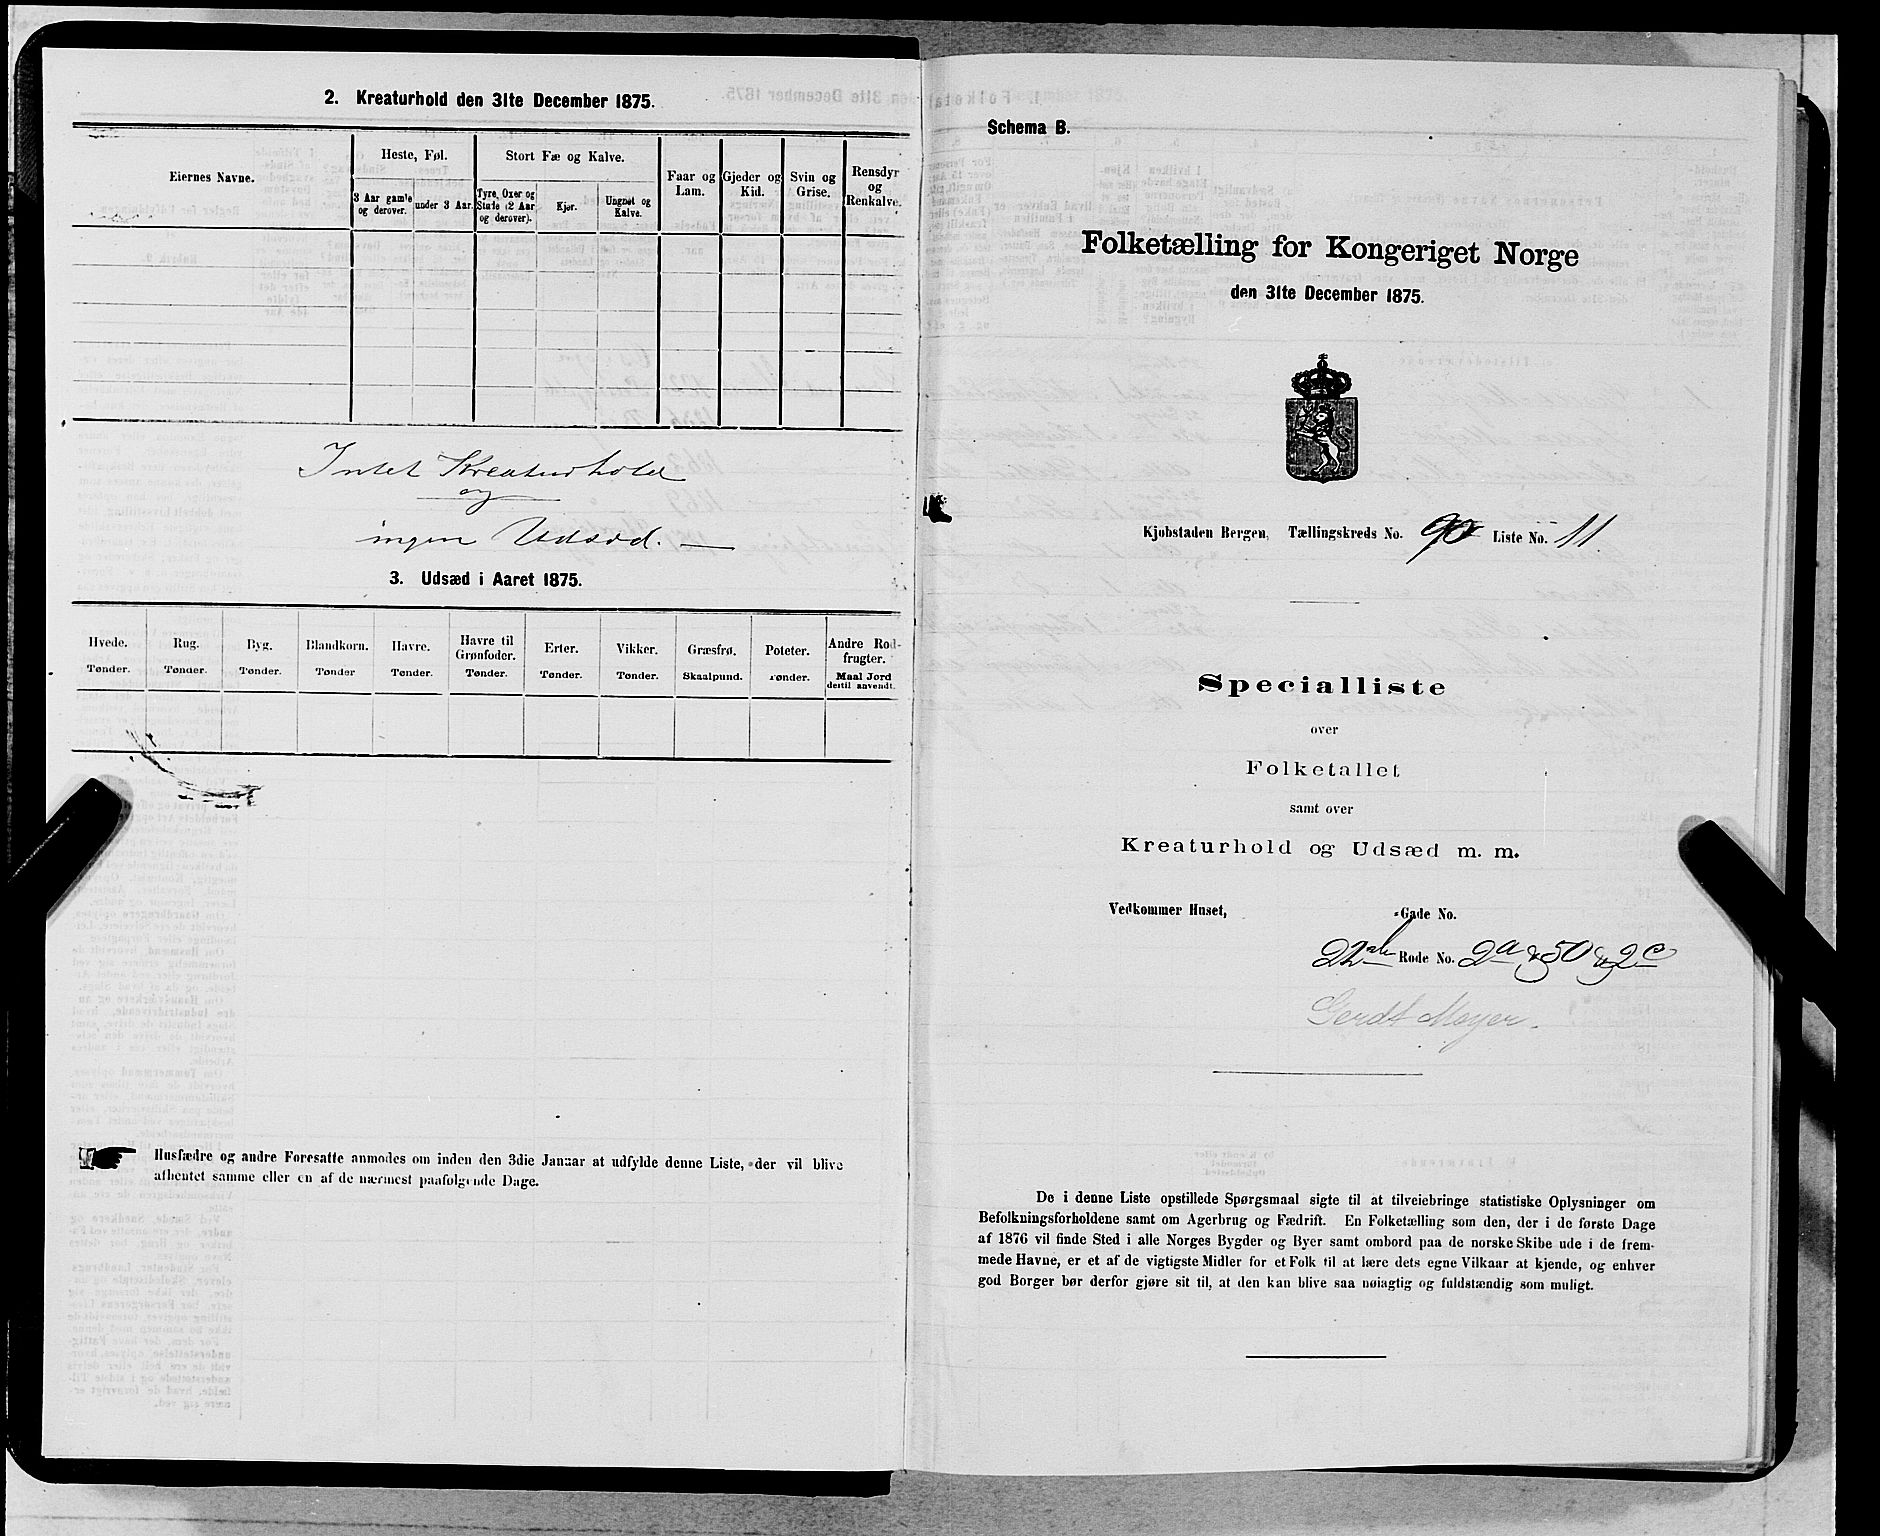 2. Kreaturhold den 31te December 1875.
Eiernes Navne.
Heste, Føl.
3 Aar gamle og derover.
under 3 Aar.
Stort Fæ og Kalve.
Tyre, Oxer og Stude (2 Aar og derover).
Kjør.
Ungnøt og Kalve.
Faar og Lam.
Gjeder og Kid.
Svin og Grise.
Rensdyr og Renkalve.
Intet Kreaturhold
og
ingen Udsæd. —
3. Udsæd i Aaret 1875.
Hvede. Tønder.
Rug. Tønder.
Byg. Tønder.
Blandkorn. Tønder
Havre. Tønder.
Havre til Grønfoder. Tønder.
Erter. Tønder.
Vikker. Tønder.
Græsfrø. Skaalpund.
Poteter. Tønder.
Andre Rodfrugter. Maal Jord dertil anvendt.
Husfædre og andre Foresatte anmodes om inden den 3die Januar at udfylde denne Liste, der vil blive
afhentet samme eller en af de nærmest paafølgende Dage.
Schema B.
Folketælling for Kongeriget Norge
den 31te December 1875.
Kjøbstaden Bergen, Tællingskreds No. 90 Liste No. 11
Specialliste
over
Folketallet
samt over
Kreaturhold og Udsæd m. m.
Vedkommer Huset, -Gade No.
22de Rode No. 2a & 50 & 2c
Gerdt Meyer.
De i denne Liste opstillede Spørgsmaal sigte til at tilveiebringe statistiske Oplysninger om
Befolkningsforholdene samt om Agerbrug og Fædrift. En Folketælling som den, der i de første Dage
af 1876 vil finde Sted i alle Norges Bygder og Byer samt ombord paa de norske Skibe ude i de frem-
mede Havne, er et af de vigtigste Midler for et Folk til at lære dets egne Vilkaar at kjende, og enhver
god Borger bør derfor gjøre sit til, at den kan blive saa nøiagtig og fuldstændig som muligt.